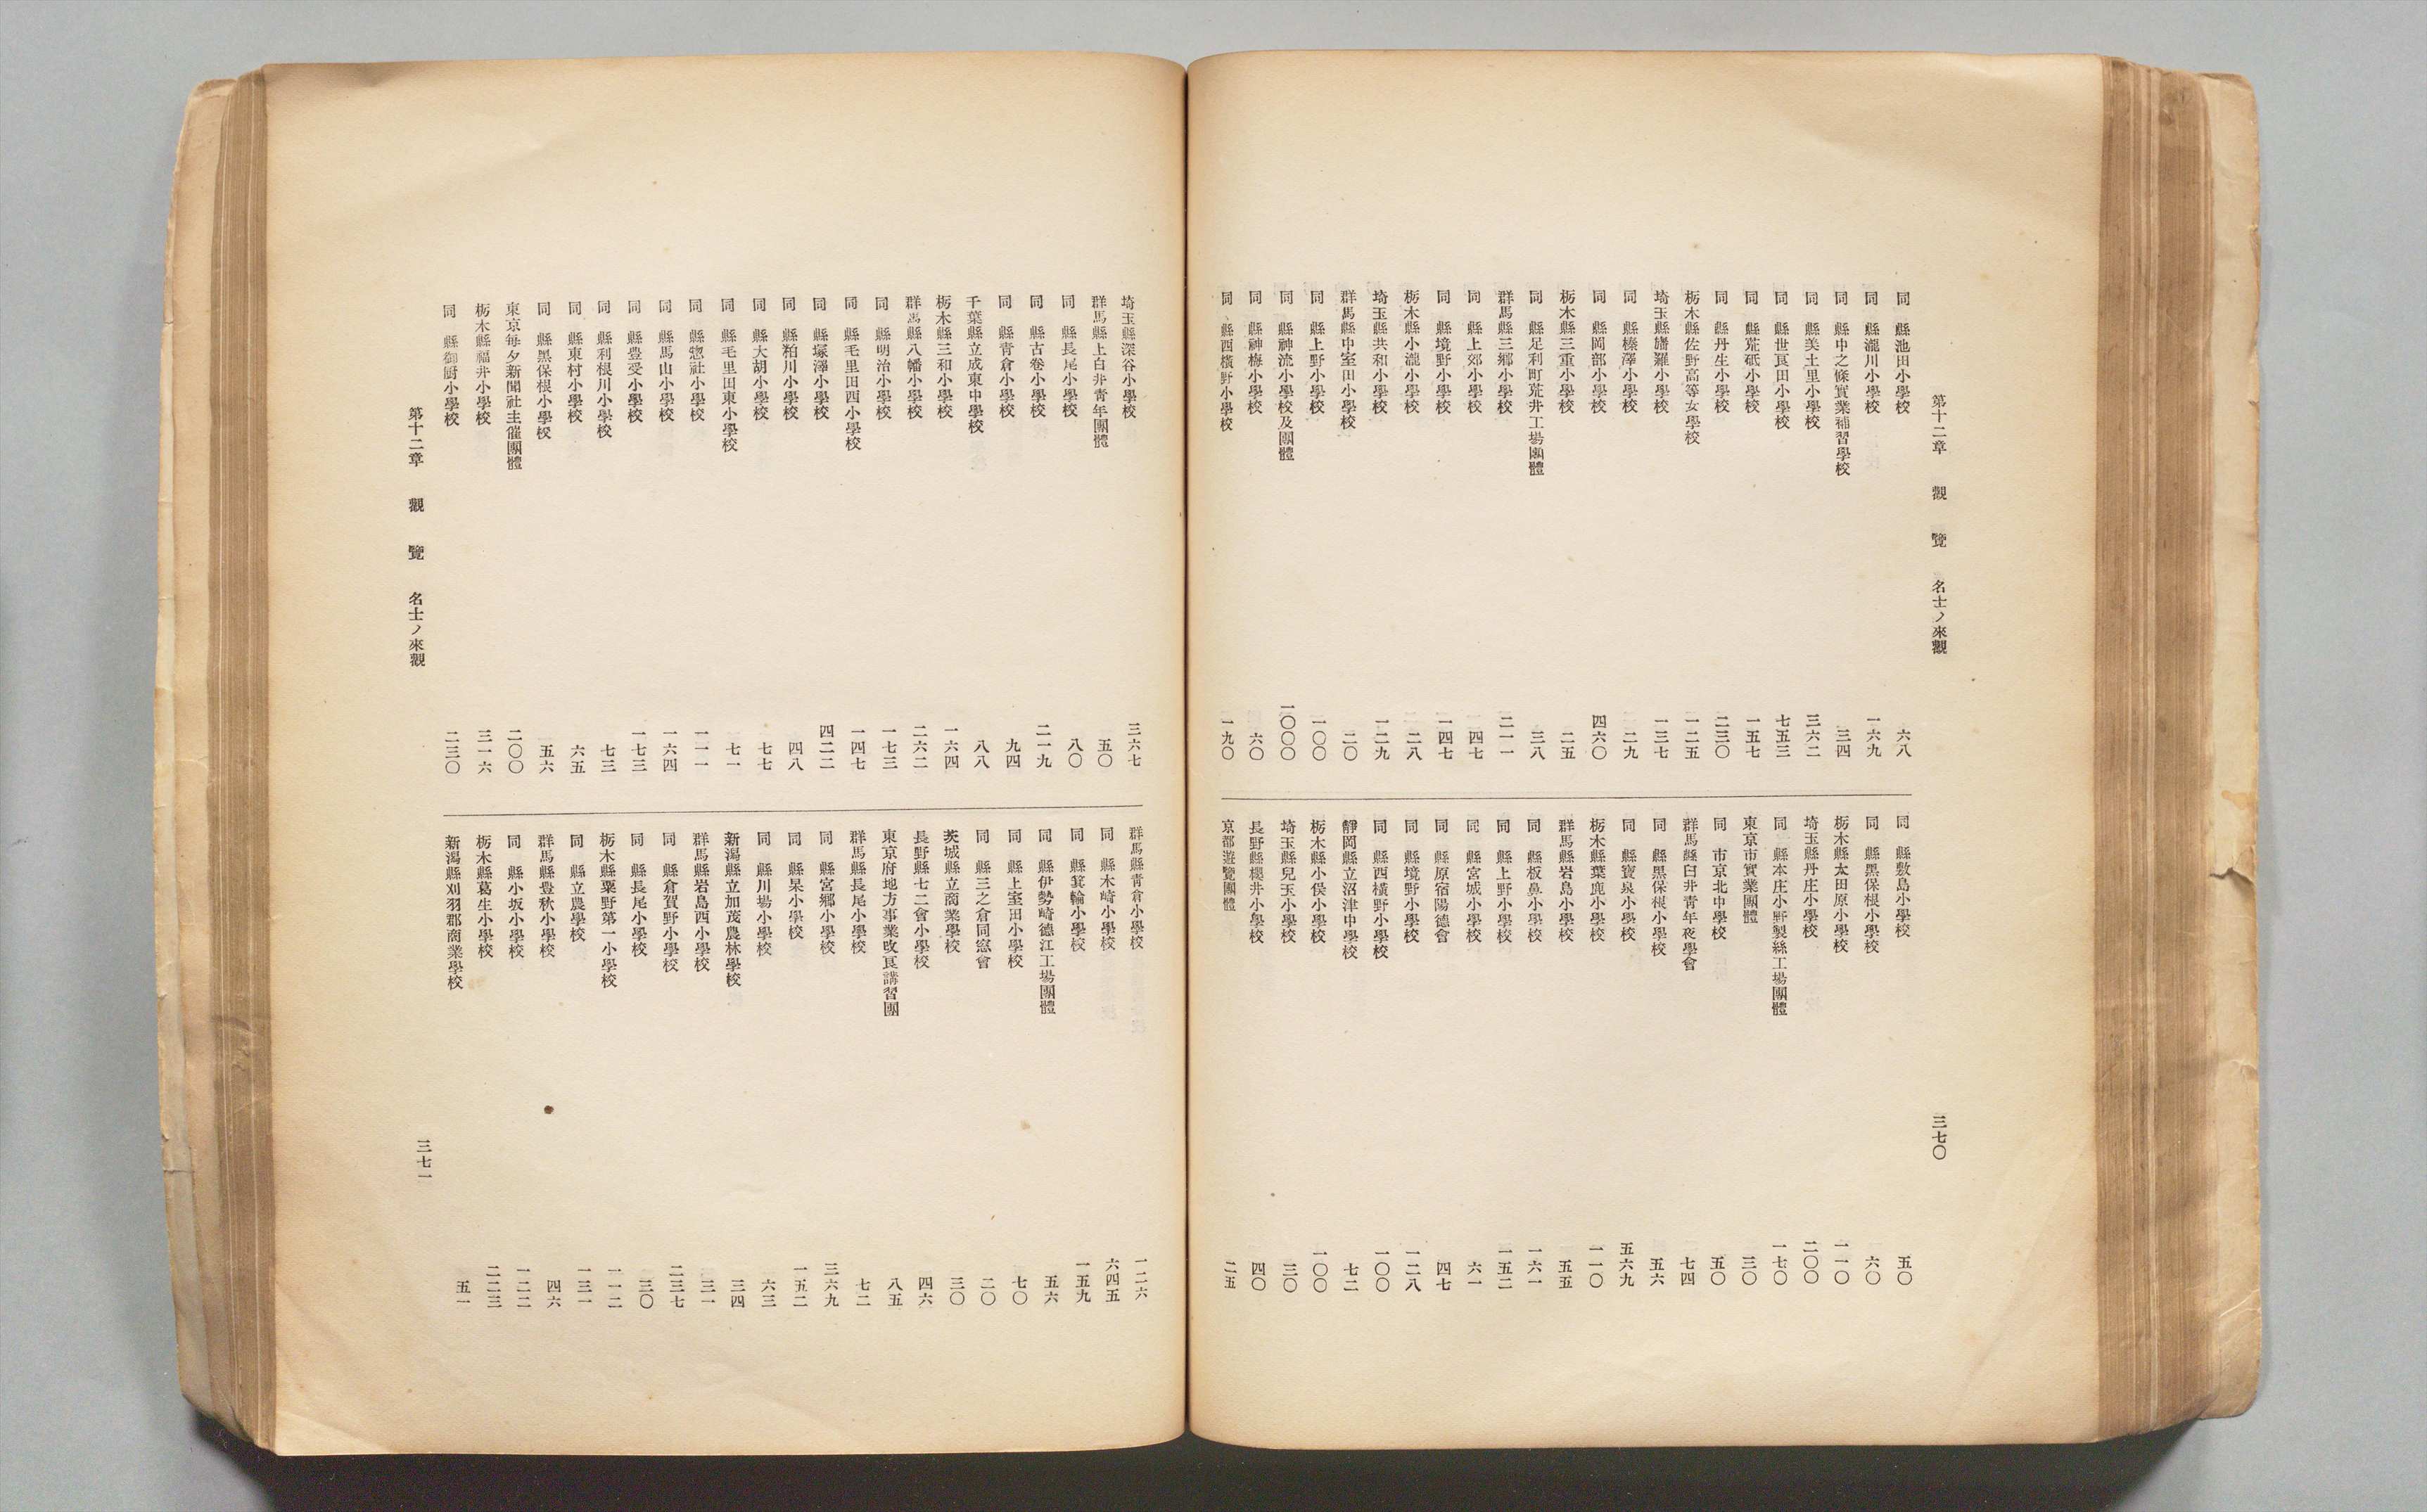 第十二章 觀 覽 名士ノ來觀 三七〇
同 縣池田小學校 六八
同 縣瀧川小學校 一六九
同 縣中之條實業補習學校 三四
同 縣美土里小學校 三六二
同 縣世良田小學校 七五三
同 縣荒砥小學校 一五七
同 縣丹生小學校 二三〇
栃木縣佐野高等女學校 一二五
埼玉縣旛羅小學校 一三七
同 縣榛澤小學校 二九
同 縣岡部小學校 四六〇
栃木縣三重小學校 二五
同 縣足利町荒井工場團體 三八
群馬縣三鄉小學校 二一一
同 縣上郊小學校 一四七
同 縣境野小學校 一四七
栃木縣小瀧小學校 二二八
埼玉縣共和小學校 一二九
群馬縣中室田小學校 二〇
同 縣上野小學校 一〇〇
同 縣神流小學校及團體 一〇〇〇
同 縣神梅小學校 六〇
同 縣西橫野小學校 一九〇
同 縣敷島小學校 五〇
同 縣黑保根小學校 六〇
栃木縣太田原小學校 一一〇
埼玉縣丹庄小學校 二〇〇
同 縣本庄小野製絲工場團體 一七〇
東京市實業團體 三〇
同 市京北中學校 五〇
群馬縣臼井靑年夜學會 七四
同 縣黑保根小學校 五六
同 縣寶泉小學校 五六九
栃木縣葉鹿小學校 一一〇
群馬縣岩島小學校 五五
同 縣板鼻小學校 一六一
同 縣上野小學校 一五二
同 縣宮城小學校 六一
同 縣原宿陽德會 四七
同 縣境野小學校 一二八
同 縣西橫野小學校 一〇〇
靜岡縣立沼津中學校 七二
栃木縣小俣小學校 一〇〇
埼玉縣兒玉小學校 三〇
長野縣櫻井小學校 四〇
京都遊覽團體 二五
埼玉縣深谷小學校 三六七
群馬縣上白井靑年團體 五〇
同 縣長尾小學校 八〇
同 縣古卷小學校 二一九
同 縣靑倉小學校 九四
千葉縣立成東中學校 八八
栃木縣三和小學校 一六四
群馬縣八幡小學校 二六二
同 縣明治小學校 一七三
同 縣毛里田西小學校 一四七
同 縣塚澤小學校 四二二
同 縣粕川小學校 四八
同 縣大胡小學校 七七
同 縣毛里田東小學校 七一
同 縣惣社小學校 一一一
同 縣馬山小學校 一六四
同 縣豊受小學校 一七三
同 縣利根川小學校 七三
同 縣東村小學校 六五
同 縣黑保根小學校 五六
東京每夕新聞社主催團體 二〇〇
栃木縣福井小學校 三一六
同 縣御厨小學校 二三〇
群馬縣靑倉小學校 一二六
同 縣木崎小學校 六四五
同 縣箕輪小學校 一五九
同 縣伊勢崎德江工場團體 五六
同 縣上室田小學校 七〇
同 縣三之倉同窓會 二〇
茨城縣立商業學校 三〇
長野縣七二會小學校 四六
東京府地方事業改良講習團 八五
群馬縣長尾小學校 七二
同 縣宮鄉小學校 三六九
同 縣杲小學校 一五二
同 縣川場小學校 六三
新潟縣立加茂農林學校 三四
群馬縣岩島西小學校 三一
同 縣倉賀野小學校 二三七
同 縣長尾小學校 三〇
栃木縣粟野第一小學校 一一二
同 縣立農學校 一三一
群馬縣豊秋小學校 四六
同 縣小坂小學校 一二二
栃木縣葛生小學校 二二三
新潟縣刈羽郡商業學校 五一
第十二章 觀 覽 名士ノ來觀 三七一